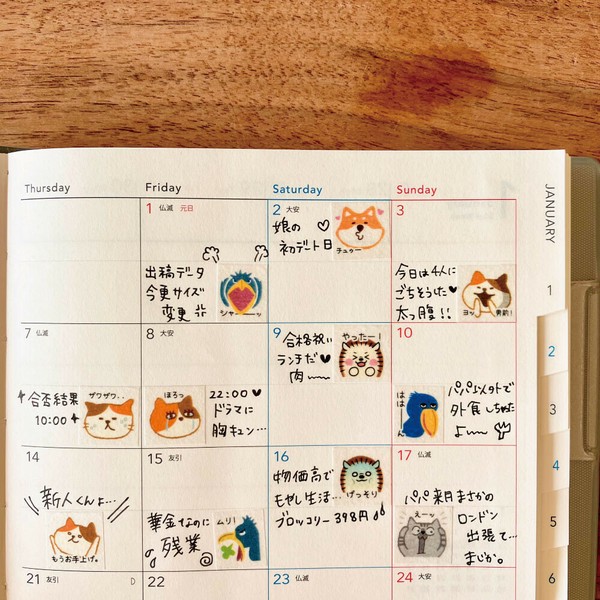 Thursday
Friday
Saturday
Sunday
JANUARY
1 仏滅 元日
出稿データ
今更サイズ
変更
シャーーッ
2 大安
娘の
初デート日
チュゥー
3
今日は4人に
ごちそうした♥
太っ腹!!
ヨッ 男前!
7 仏滅
合否結果
10:00
ザワザワ..
8 大安
ほろっ
22:00♥
ドラマに
胸キュン…
9
合格祝い
ランチだ♥
肉〜〜
やったー!
10
パパ以外で
外食しちゃた
よ〜〜
ははーん
14
新人くんよ…
もうお手上げ。
15 友引
華金なのに
残業
ムリ!
16
物価高で
もやし生活…
ブロッコリー398円
げっそり
17 仏滅
パパ来月まさかの
ロンドン
出張て…
まじか。
えーッ
21 友引
D
22
23 仏滅
24 大安
1
2
3
4
5
6